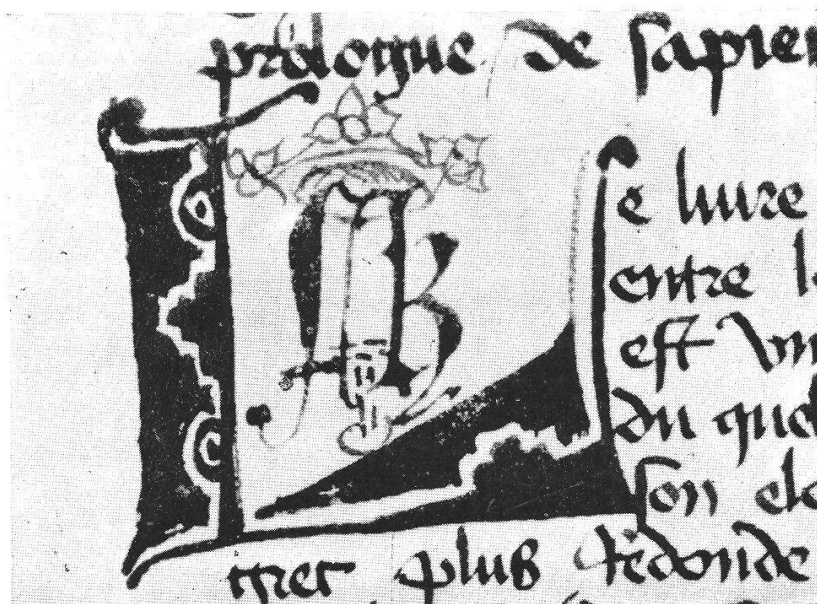 prologue de sapien
Le liure
entre l
est vn
du que
son ele
gret plus redonde